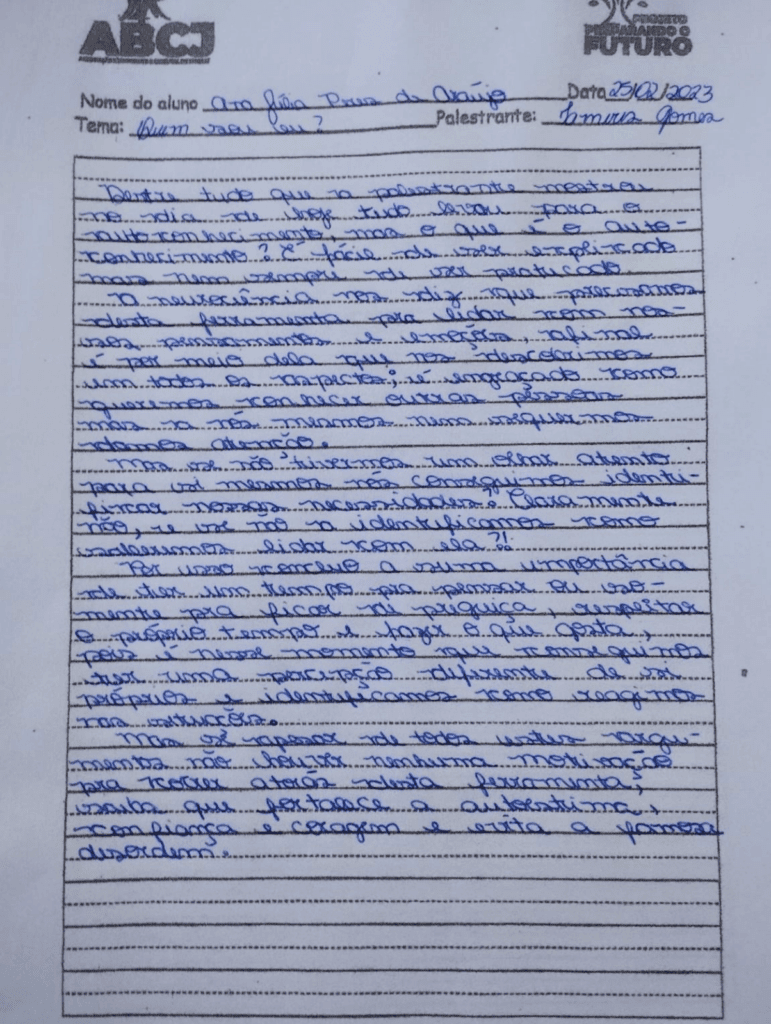 ABCJ
PROJETO
PREPARANDO O
FUTURO
Nome do aluno Ana Júlia de Araújo Data 25/02/2023
Tema: Quem sou eu? Palestrante: Gomes
Dentre tudo que a palestrante mostrou
no dia de hoje tudo levou para o
autoconhecimento, mas o que é o auto-
conhecimento? É fácil de ser explicado
mas nem sempre de ser praticado.
A neurociência nos diz que precisamos
desta ferramenta pra lidar com nos-
sos pensamentos e emoções, afinal
é por meio dela que nos descobrimos
em todos os aspectos; é engraçado como
queremos conhecer outras pessoas
mas a nós mesmos nem sequer nos
damos atenção.
Mas se não tivermos um olhar atento
para si mesmos nós conseguimos identi-
ficar nossas necessidades? Claramente
não, e se não a identificamos como
saberemos lidar com ela?!
Por isso concluo a suma importância
de ter um tempo pra pensar ou so-
mente pra ficar de preguiça, respeitar
o próprio tempo e fazer o que gosta,
pois é nesse momento que conseguimos
ter uma percepção diferente de si
próprios e identificamos como reagimos
nas situações.
Mas se apesar de todos estes argu-
mentos não houver nenhuma motivação
pra correr atrás desta ferramenta,
saiba que fortalece a autoestima,
confiança e coragem e evita a famosa
desordem.